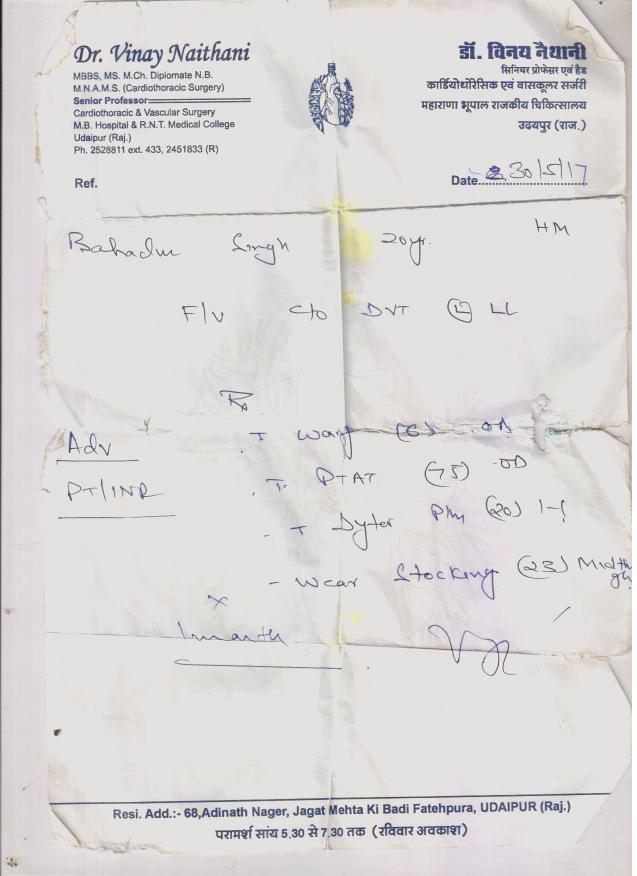 Dr. Vinay Naithani
MBBS, MS. M.Ch. Diplomate N.B.
M.N.A.M.S. (Cardiothoracic Surgery)
Senior Professor
Cardiothoracic & Vascular Surgery
M.B. Hospital & R.N.T. Medical College
Udaipur (Raj.)
Ph. 2528811 ext. 433, 2451833 (R)
डॉ. विनय नैथानी
सिनियर प्रोफेसर एवं हैड
कार्डियोथोरेसिक एवं वासकूलर सर्जरी
महाराणा भूपाल राजकीय चिकित्सालय
उदयपुर (राज.)
Ref.
Date 30/5/17
Bahadur Singh 20yr. HM
F/U C/o DVT (L) LL
Rx
Adv
PT/INR
T Warf (6) OD
T. PTAT (75) OD
- T Dytor Plus (20) 1-1
- Wear Stocking (23) Midthigh
x
1 month
Resi. Add.:- 68,Adinath Nager, Jagat Mehta Ki Badi Fatehpura, UDAIPUR (Raj.)
परामर्श सांय 5.30 से 7.30 तक (रविवार अवकाश)